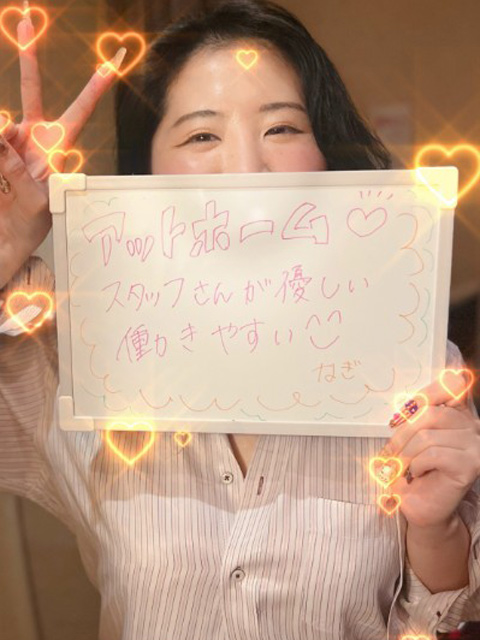 アットホーム♡
スタッフさんが優しい
働きやすい
なぎ